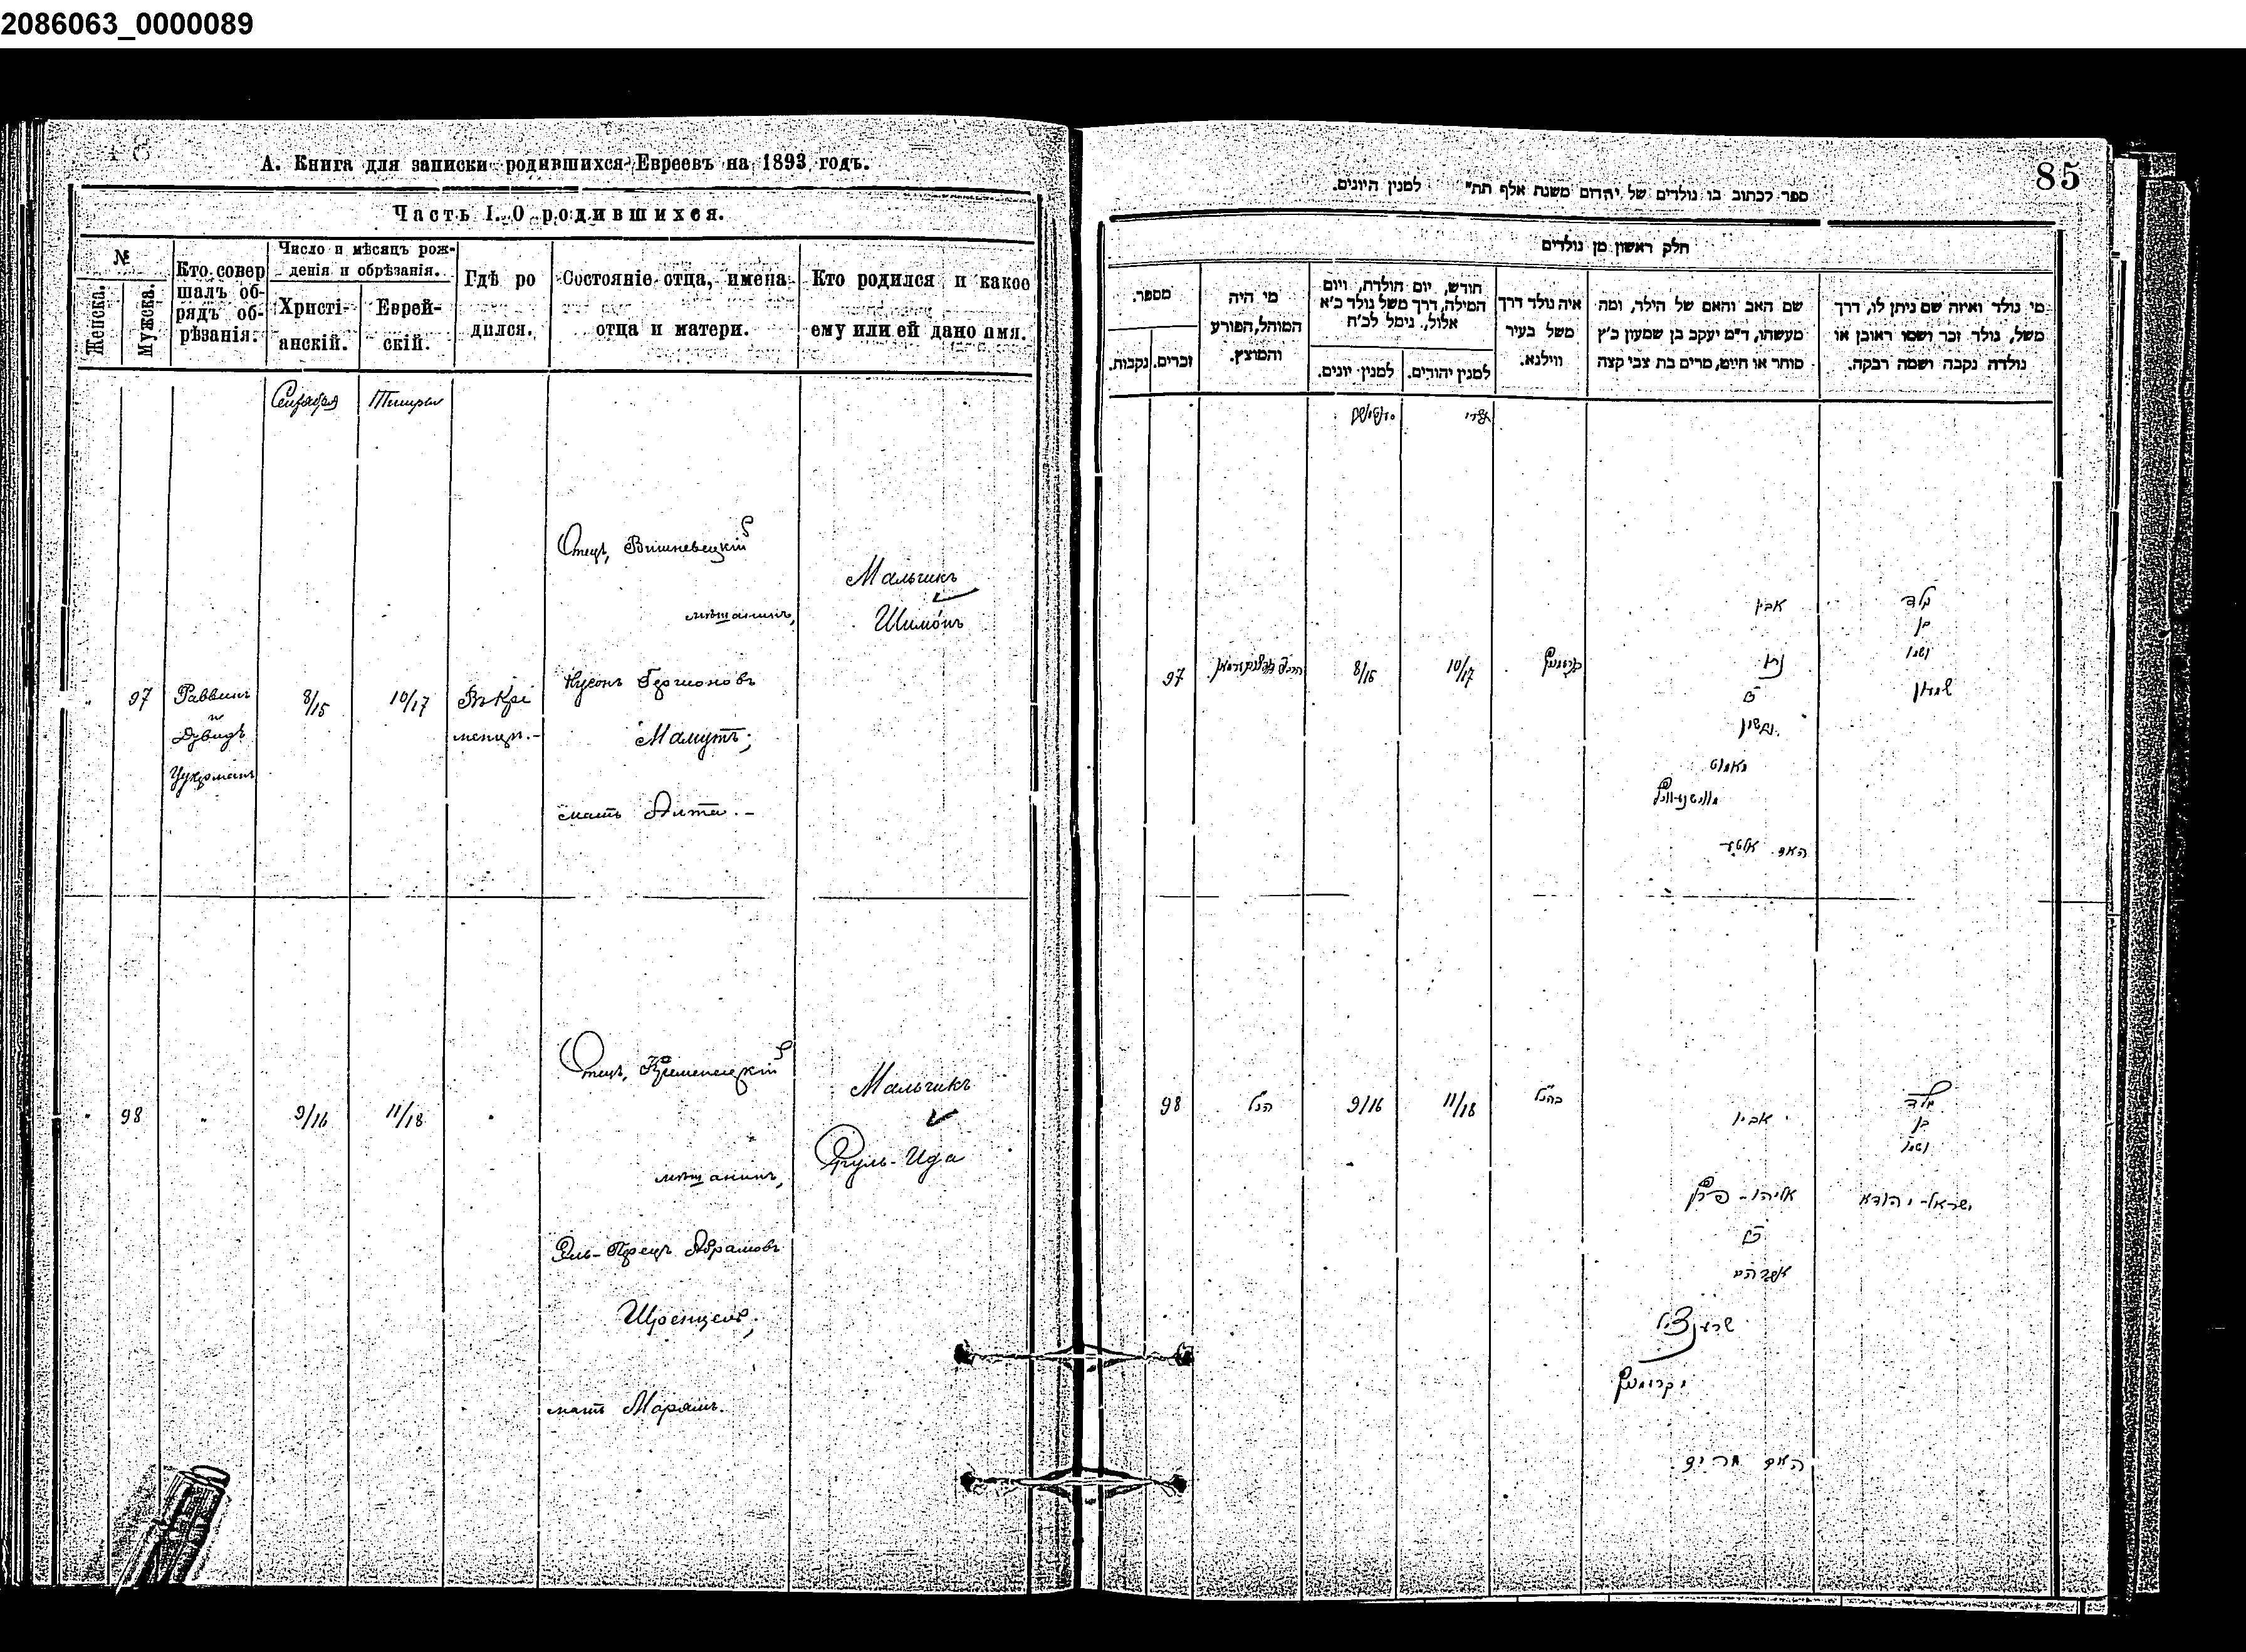 2086063_0000089
А. Книга для записки родившихся Евреевъ на 1893 годъ.
Часть I. О родившихся.
№
Женска.
Мужска.
Кто совер
шалъ об-
рядъ об-
рѣзанія.
Число и мѣсяцъ рож-
денія и обрѣзанія.
Христі-
анскій.
Еврей-
скій.
Гдѣ ро
дился.
Состояніе отца, имена
отца и матери.
Кто родился и какое
ему или ей дано имя.
Сентября
Тишры
97
Раввинъ
и
Дувидъ
Цукрманъ
8/15
10/17
Въ Кре
менцѣ.-
Отецъ, Вишневецкій
мѣщанинъ,
Нусонъ Гершоновъ
Мамутъ;
мать Алта.-
Мальчикъ
Шимонъ
98
9/16
11/18
Отецъ, Кременецкій
мѣщанинъ,
Абрамовъ
Шренцель;
мать Марямъ.
Мальчикъ
Сруль-Ида
85
ספר לכתוב בו נולדים של יהודים משנת אלף תת״ למנין היונים.
חלק ראשון מן נולדים
מספר.
זכרים.
נקבות.
מי היה
המוהל, הפורע
והמוצץ.
חודש, יום הולדת, ויום
המילה, דרך משל נולד כ״א
אלול, נימל לכ״ח
למנין יונים.
למנין יהודים.
איה נולד דרך
משל בעיר
ווילנא.
שם האב והאם של הילד, ומה
מעשהו, ד״מ יעקב בן שמעון כ״ץ
סוחר או חייט, מרים בת צבי קצה
מי נולד ואיזה שם ניתן לו, דרך
משל, נולד זכר ושמו ראובן או
נולדה נקבה ושמה רבקה.
תשרי
97
8/15
10/17
אביו
נתן
האם אלטע
נולד
בן
ושמו
שמעון
98
הנ״ל
9/16
11/18
כהנ״ל
אביו
אליהו - פרץ
אברהם
שרענציל
האם מרים
נולד
בן
ושמו
ישראל - יהודא